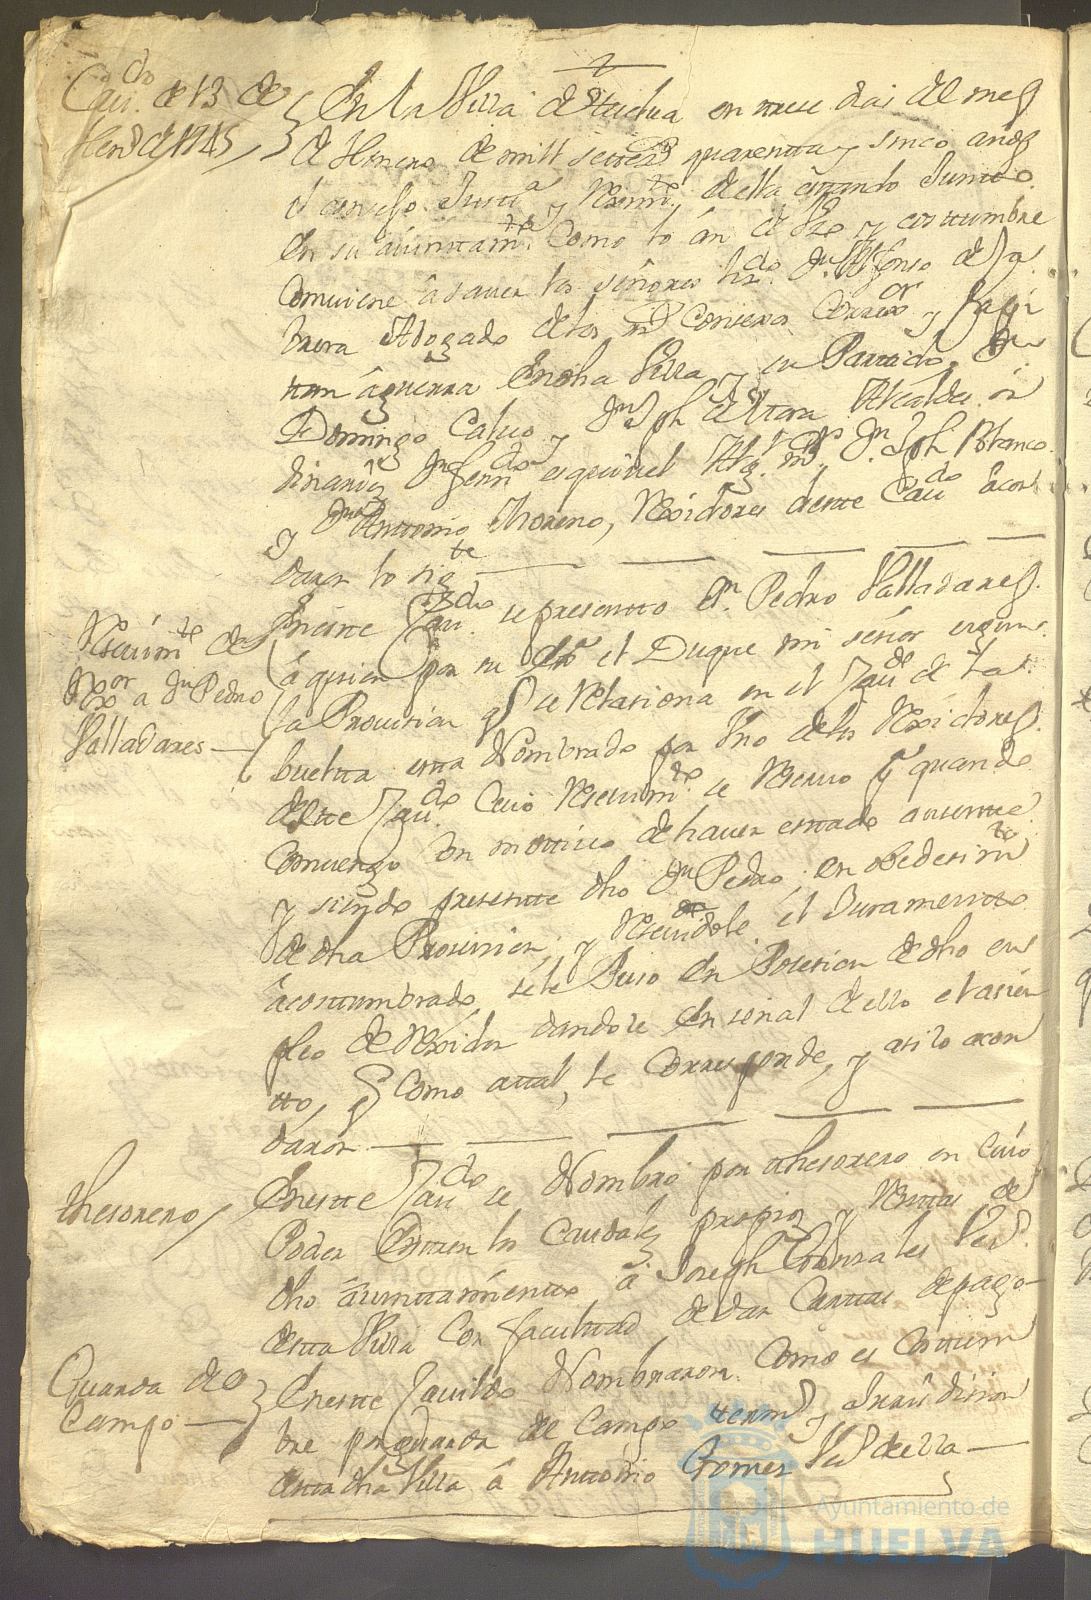 Cavdo de 13 de
Henº de 1745
En la Villa de Huelva en trece dias del mes
de Henero de mill setesos quarenta y sinco años
el consejo Justa y Reximto della estando Junto
en su aiuntamto como lo án de Uso y costumbre
Conviene â saver los señores Lizdo Dn Alfonso de
Abogado de los Rs Consexos Corror y Capi
tan â guerra En dha Villa y su Partido, Dn
Domingo Calvo y Dn Jph de Alcaldes or
dinarios Dn esquivel Algl mor Dn Jph Blanco
y Dn Anttonio Moreno, Rexidores deste Cavdo acor
daron lo sigte
Eneste Cavdo se presentto Dn Pedro Valladares
Resivimto de
Rexor a Dn Pedro
Valladares
â quien por su Exa el Duque mi señor segun
la Provision qe se Relasiona en el Cavdo de la
buelta esta Nombrado por Uno de los Rexidores
deste Cavdo Cuio Resivimto se Reservo pa quando
Convenga con motivo de haver estado ausente
y siendo presente dho Dn Pedro, en obedesimto
de dha Provision, y Resivídole el Juramento
âcostumbrado, se le Puso en Posesion de dho em
pleo de Rexidor dandole En señal de ello el asien
tto, qe Como attal, le Corresponde, y asi lo acor
daron
thesorero
Eneste Cavdo se Nombró por thesorero en Cuio
Poder Entren los Caudales propios y Renttas de
dho âiuntamiento â Joseph Gonzales Veº
desta Villa Con facultad de dar Carttas de pago
Guarda de
Campo
Eneste Cavildo Nombraron Como es Costum
bre por guarda de Campo termº y Jurisdision
desta dha Villa â Anttonio Gomes Veº de ella
Ayuntamiento de
HUELVA